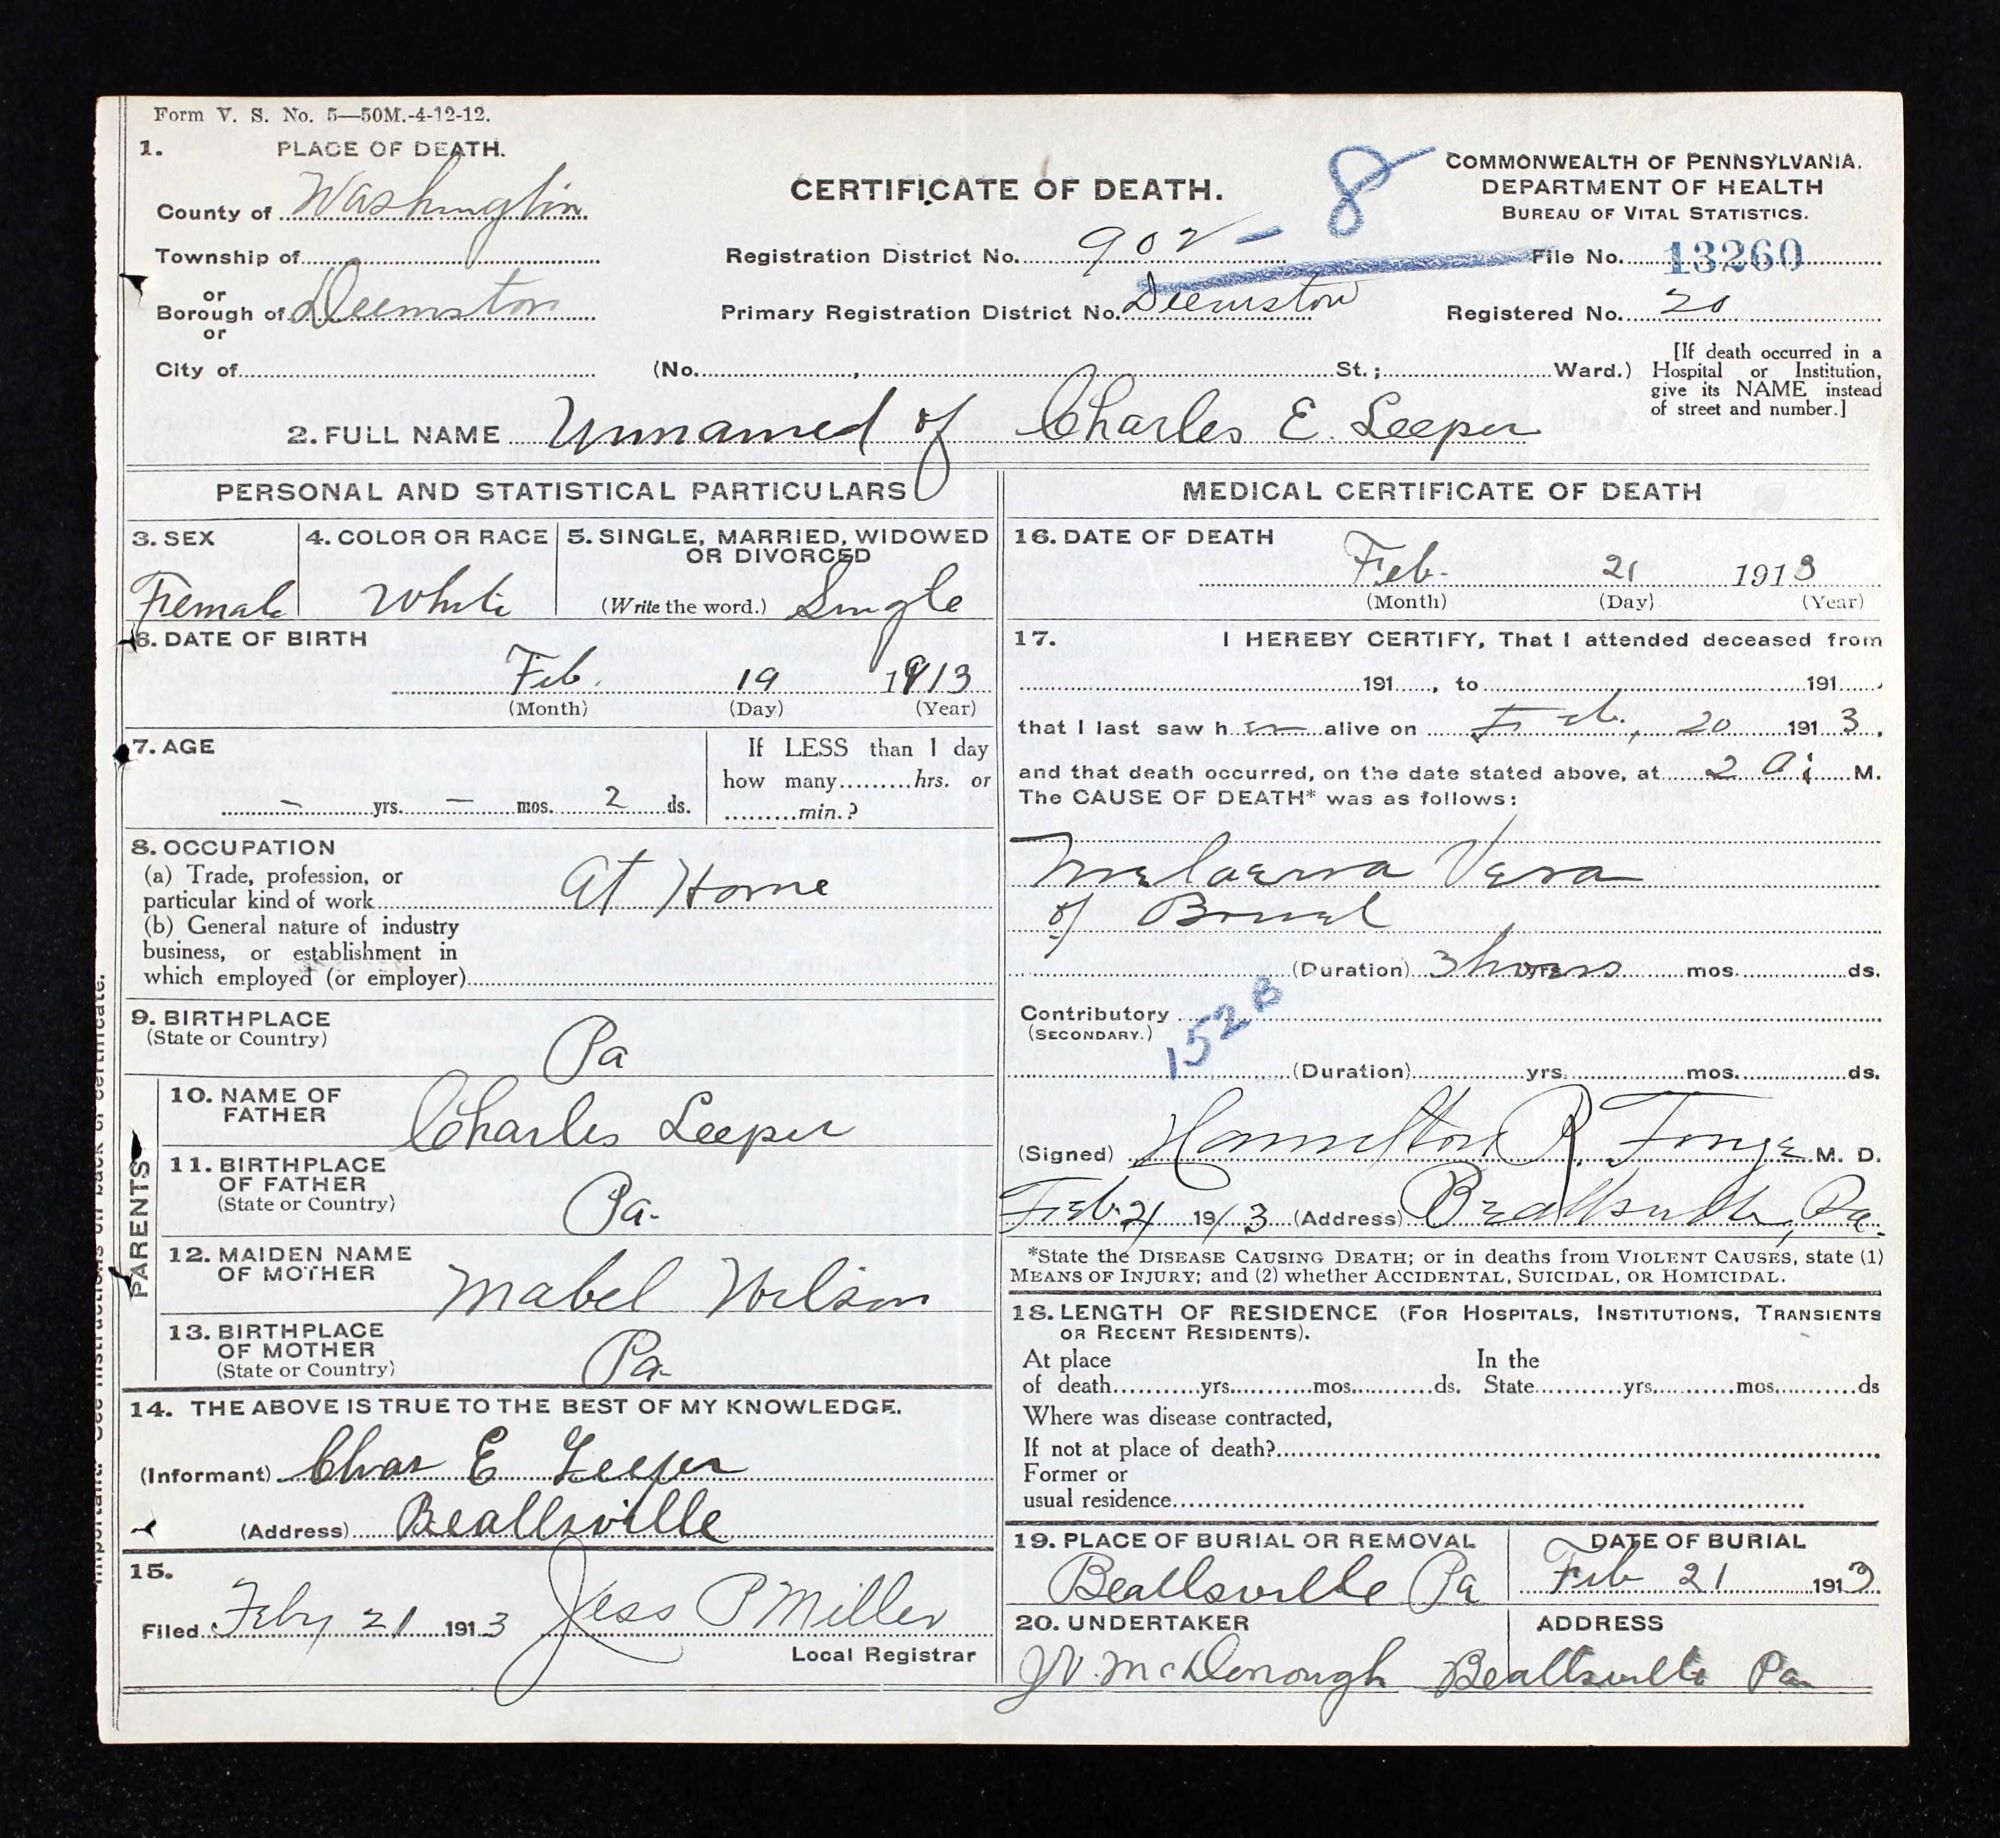 Form V. S. No. 5—50M.-4-12-12.
1. PLACE OF DEATH.
County of Washington
Township of
or
Borough of Deemston
or
City of
CERTIFICATE OF DEATH.
8
COMMONWEALTH OF PENNSYLVANIA.
DEPARTMENT OF HEALTH
BUREAU OF VITAL STATISTICS.
Registration District No. 902 -
File No. 13260
Primary Registration District No. Deemston
Registered No. 20
(No. , St.; Ward.)
[If death occurred in a
Hospital or Institution,
give its NAME instead
of street and number.]
2. FULL NAME Unnamed of Charles E. Leeper
PERSONAL AND STATISTICAL PARTICULARS
3. SEX
Female
4. COLOR OR RACE
White
5. SINGLE, MARRIED, WIDOWED
OR DIVORCED
(Write the word.) Single
6. DATE OF BIRTH
Feb. 19 1913
(Month) (Day) (Year)
7. AGE
– yrs. – mos. 2 ds.
If LESS than 1 day
how many hrs. or
min.?
8. OCCUPATION
(a) Trade, profession, or
particular kind of work At Home
(b) General nature of industry
business, or establishment in
which employed (or employer)
9. BIRTHPLACE
(State or Country)
Pa
PARENTS
10. NAME OF
FATHER
Charles Leeper
11. BIRTHPLACE
OF FATHER
(State or Country)
Pa.
12. MAIDEN NAME
OF MOTHER
Mabel Wilson
13. BIRTHPLACE
OF MOTHER
(State or Country)
Pa.
14. THE ABOVE IS TRUE TO THE BEST OF MY KNOWLEDGE.
(Informant) Chas E Leeper
(Address) Beallsville
15.
Filed Feby 21 1913 Jess P Miller
Local Registrar
MEDICAL CERTIFICATE OF DEATH
16. DATE OF DEATH
Feb. 21 1913
(Month) (Day) (Year)
17. I HEREBY CERTIFY, That I attended deceased from
191 , to 191 ,
that I last saw h er alive on Feb, 20 1913,
and that death occurred, on the date stated above, at 2 a. M.
The CAUSE OF DEATH* was as follows:
Melaena Vera
of Bowel
(Duration) 3 hours yrs. mos. ds.
Contributory
(SECONDARY.)
152 B
(Duration) yrs. mos. ds.
(Signed) Hamilton R. M. D.
Feb. 21 1913 (Address) Beallsville, Pa.
*State the DISEASE CAUSING DEATH; or in deaths from VIOLENT CAUSES, state (1)
MEANS OF INJURY; and (2) whether ACCIDENTAL, SUICIDAL, OR HOMICIDAL.
18. LENGTH OF RESIDENCE (FOR HOSPITALS, INSTITUTIONS, TRANSIENTS
OR RECENT RESIDENTS).
At place
of death yrs. mos. ds.
In the
State yrs. mos. ds
Where was disease contracted,
If not at place of death?
Former or
usual residence
19. PLACE OF BURIAL OR REMOVAL
Beallsville Pa
DATE OF BURIAL
Feb 21 1913
20. UNDERTAKER
McDonough
ADDRESS
Beallsville Pa
important. See instructions on back of certificate.